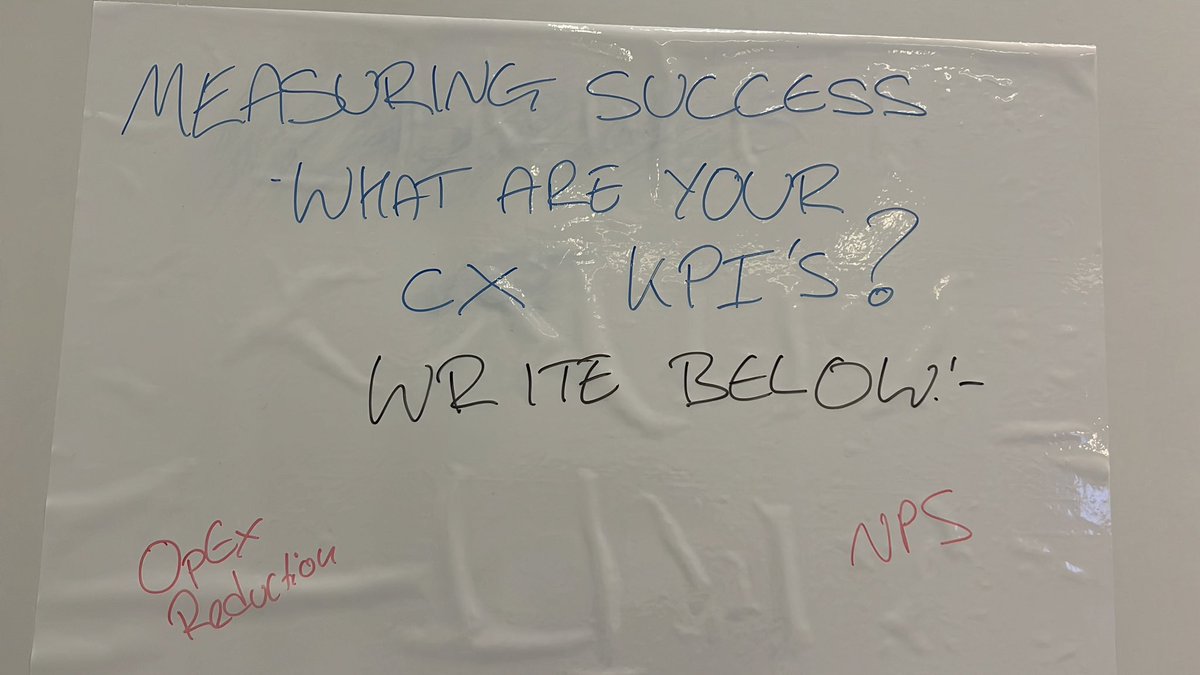 MEASURING SUCCESS
-WHAT ARE YOUR
CX KPI'S?
WRITE BELOW:-
OpEx
Reduction
NPS